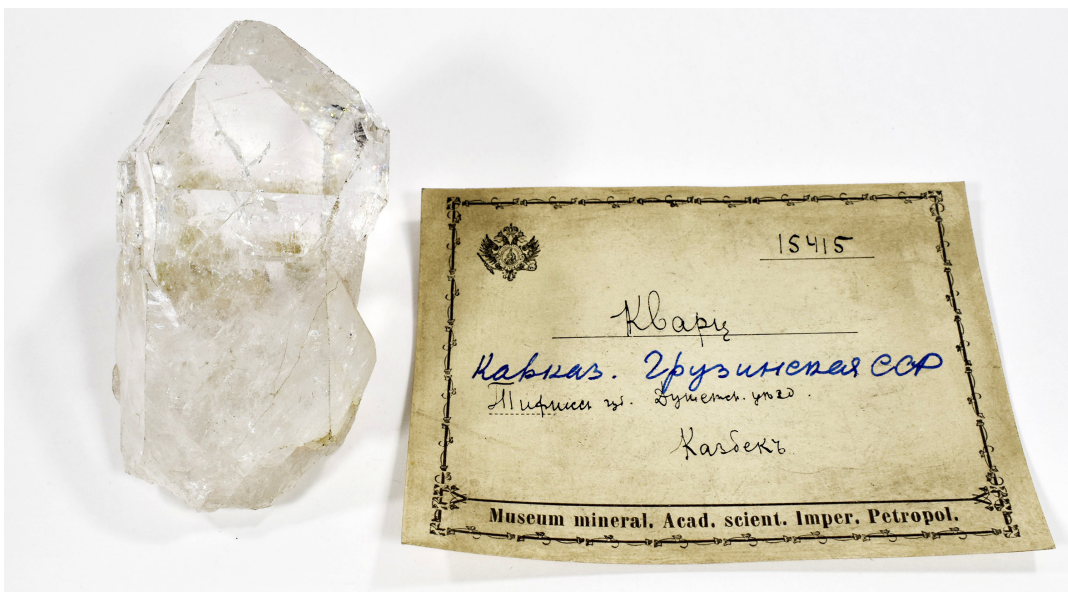 15415
Кварц
Кавказ. Грузинская ССР
Тифлисс. губ. Душетск. уезд.
Казбекъ
Museum mineral. Acad. scient. Imper. Petropol.